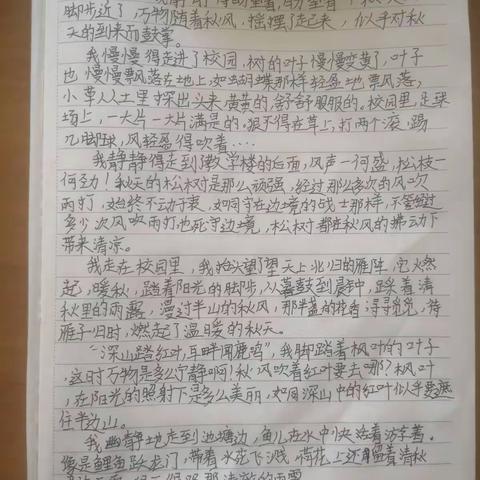 脚步近了,万物随着秋风,摇摆了起来,似乎对秋
天的到来而鼓掌。
我慢慢得走进了校园,树的叶子慢慢变黄了,叶子
也慢慢飘落在地上,如蝴蝶那样轻盈地票风落,
小草从土里探出头来,黄黄的,舒舒服服的。校园里,足球
场上,一大片一大片满是的。恨不得在草上,打两个滚,踢
几脚球,风轻盈得吹着····
我静静得走到了教学楼的后面,风声一何盛,松枝一
何劲!秋天的松树是那么顽强,经过那么多次的风吹
雨打,始终不动于衷,如同守在边境的战士那样,不管经过
多少次风吹雨打也死守边境,松树都在秋风的拂动下
带来清凉。
我走在校园里,我抬头望了望天上北归的雁阵,它燃
起,暖秋,踏着阳光的脚步,从暮鼓到晨钟,踩着清
秋里的雨露,漫过半山的秋风,那半盏的花香寻寻觅觅,待
雁子归时,燃起了温暖的秋天。
“深山踏红叶,耳畔闻鹿鸣”,我脚踏着枫叶的叶子
,这时万物是多么宁静啊!秋风吹着红叶要去哪?枫叶
,在阳光的照射下是多么美丽,如同深山中的红叶似乎要遮
住半边山。
我幽静地走到池塘边,鱼儿在水中快活着游字着。
像是鲤鱼跃龙门,带着水花飞溅,荷花上还留着清秋